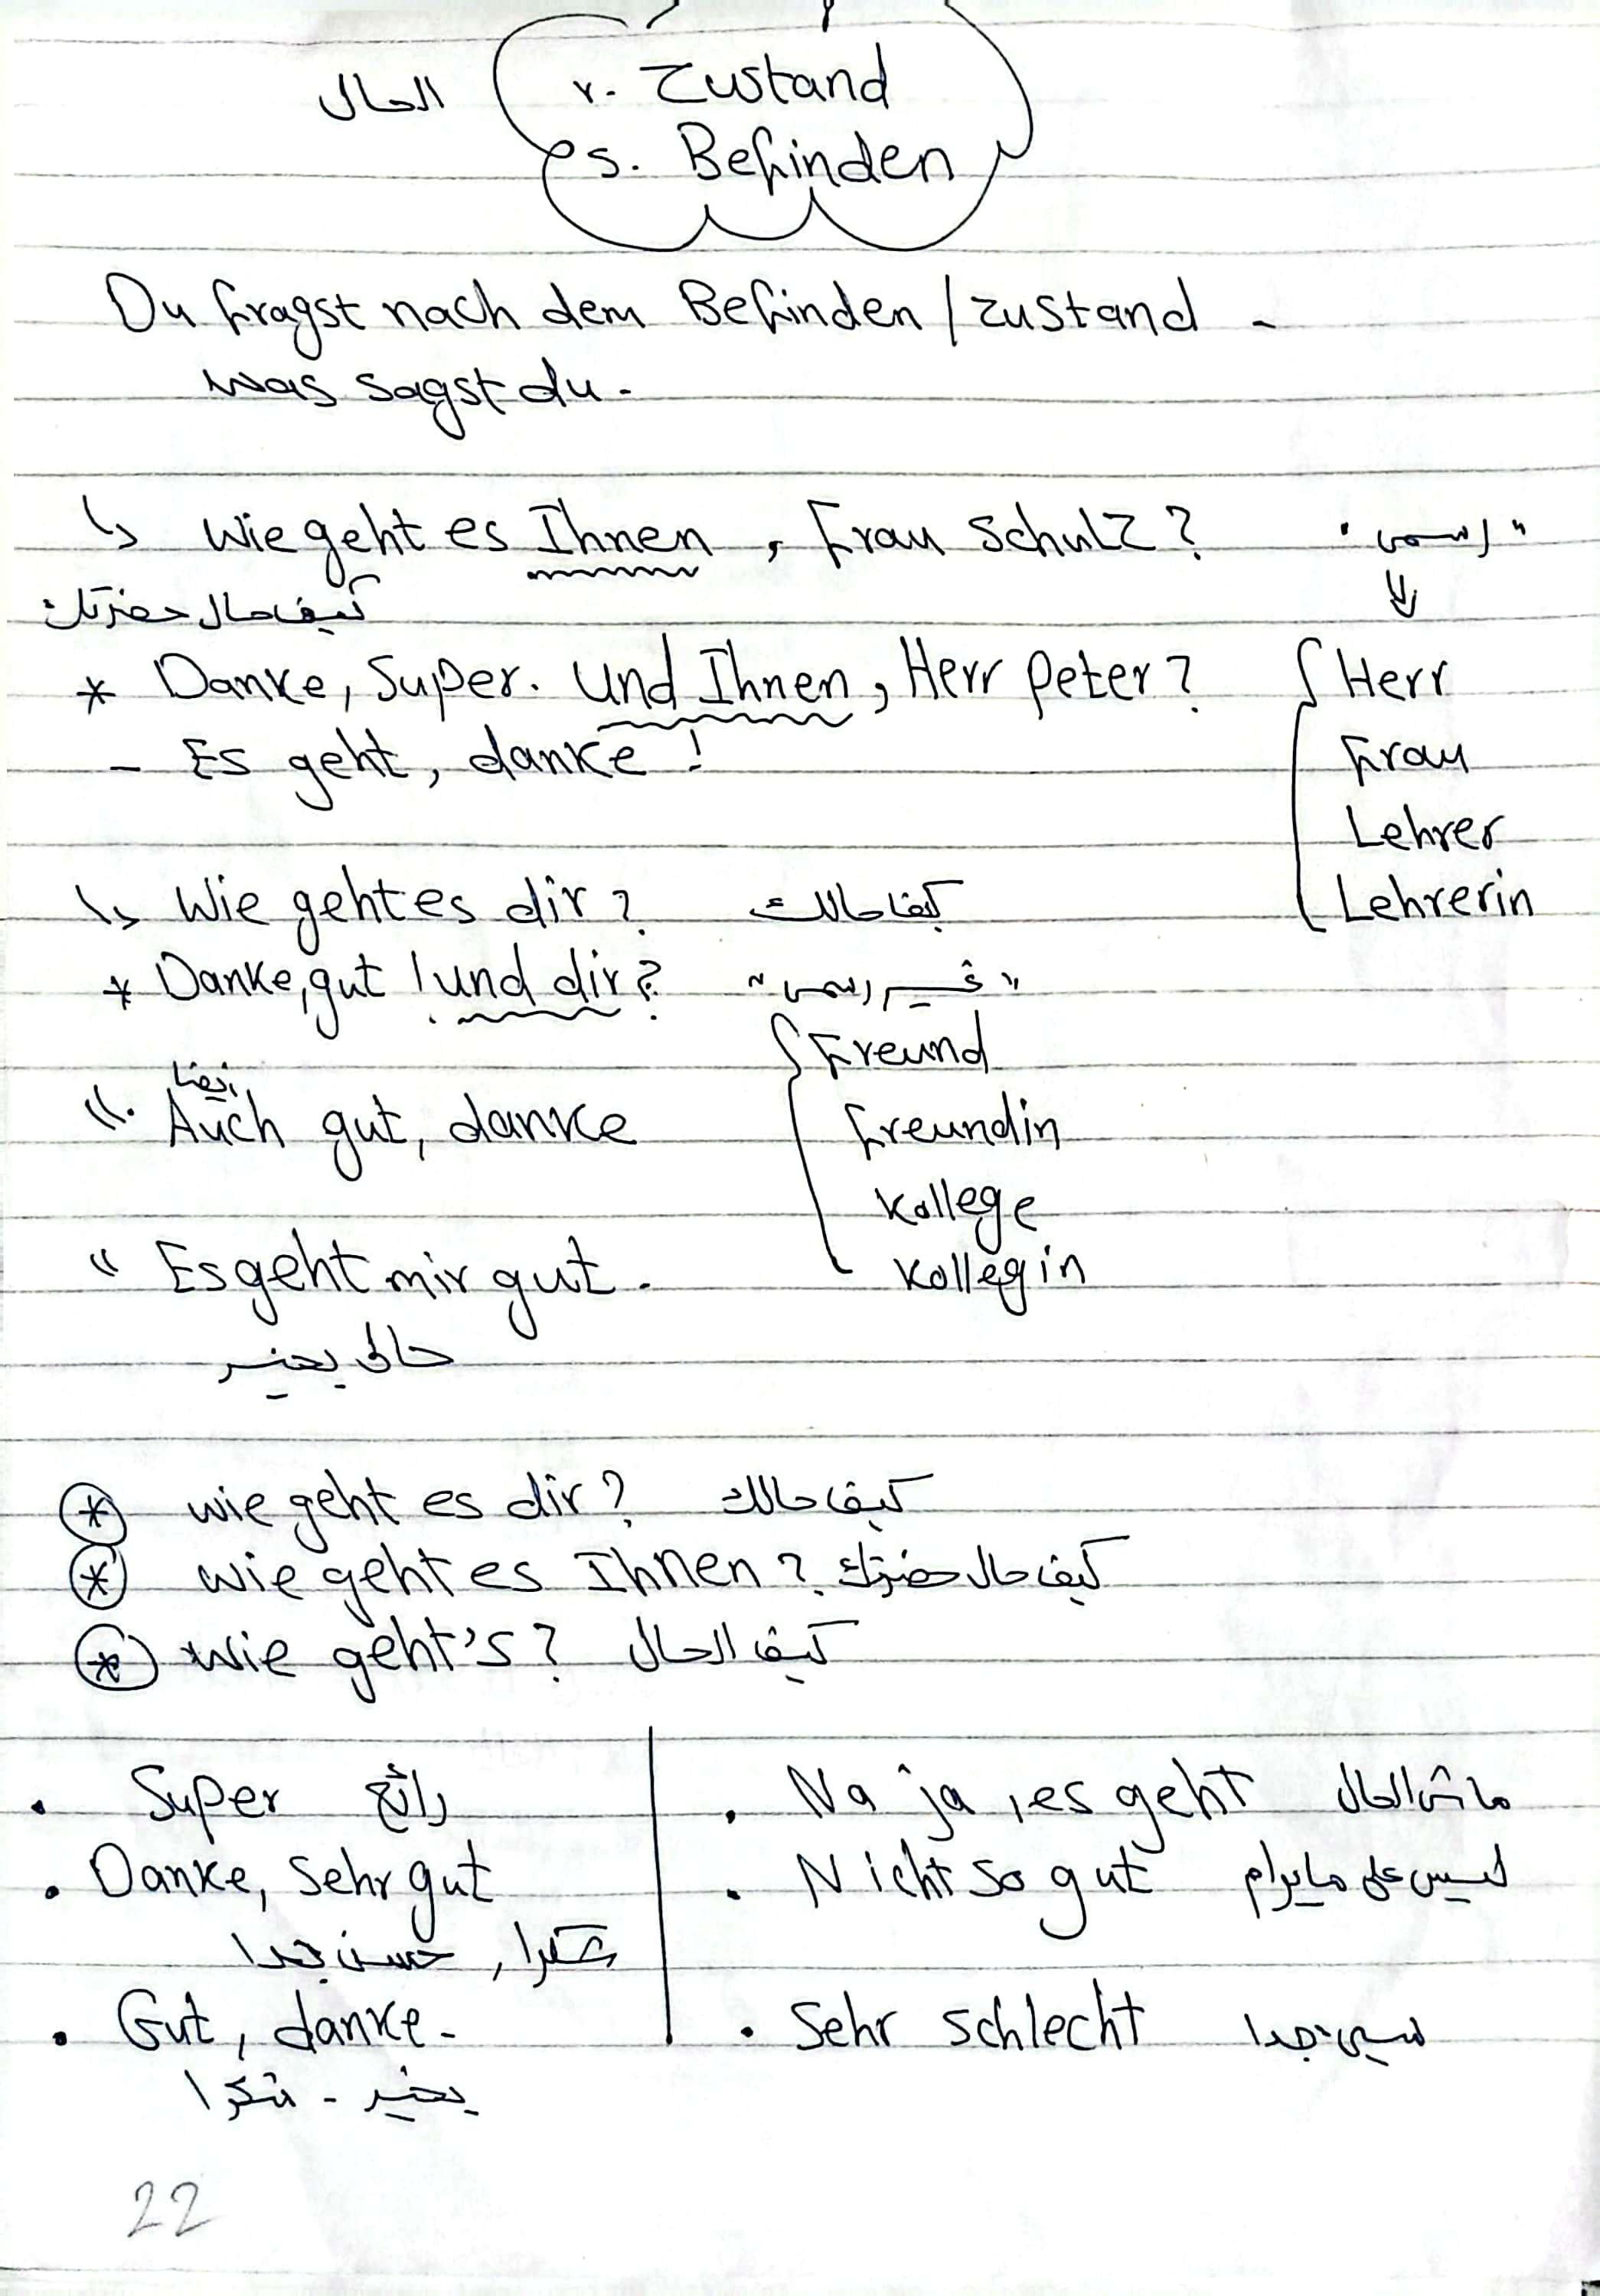 الحال
r. Zustand
s. Befinden
Du fragst nach dem Befinden / Zustand -
was sagst du.
↳ wie geht es Ihnen, Frau Schulz? "رسمى"
كيف حال حضرتك ⇓
* Danke, Super. und Ihnen, Herr Peter? { Herr
- Es geht, danke! Frau
Lehrer
↳ Wie geht es dir? كيف حالك Lehrerin
* Danke, gut! und dir? "غير رسمى"
{ Freund
أيضا
". Auch gut, danke Freundin
Kollege
" Es geht mir gut. Kollegin
حالى بخير
* wie geht es dir? كيف حالك
* wie geht es Ihnen? كيف حال حضرتك
* wie geht's? كيف الحال
• Super رائع
• Danke, sehr gut
شكرا, حسن جدا
• Gut, danke-
بخير - شكرا
• Na ja, es geht ماشى الحال
• Nicht so gut ليس على ما يرام
• Sehr schlecht سيئ جدا
22